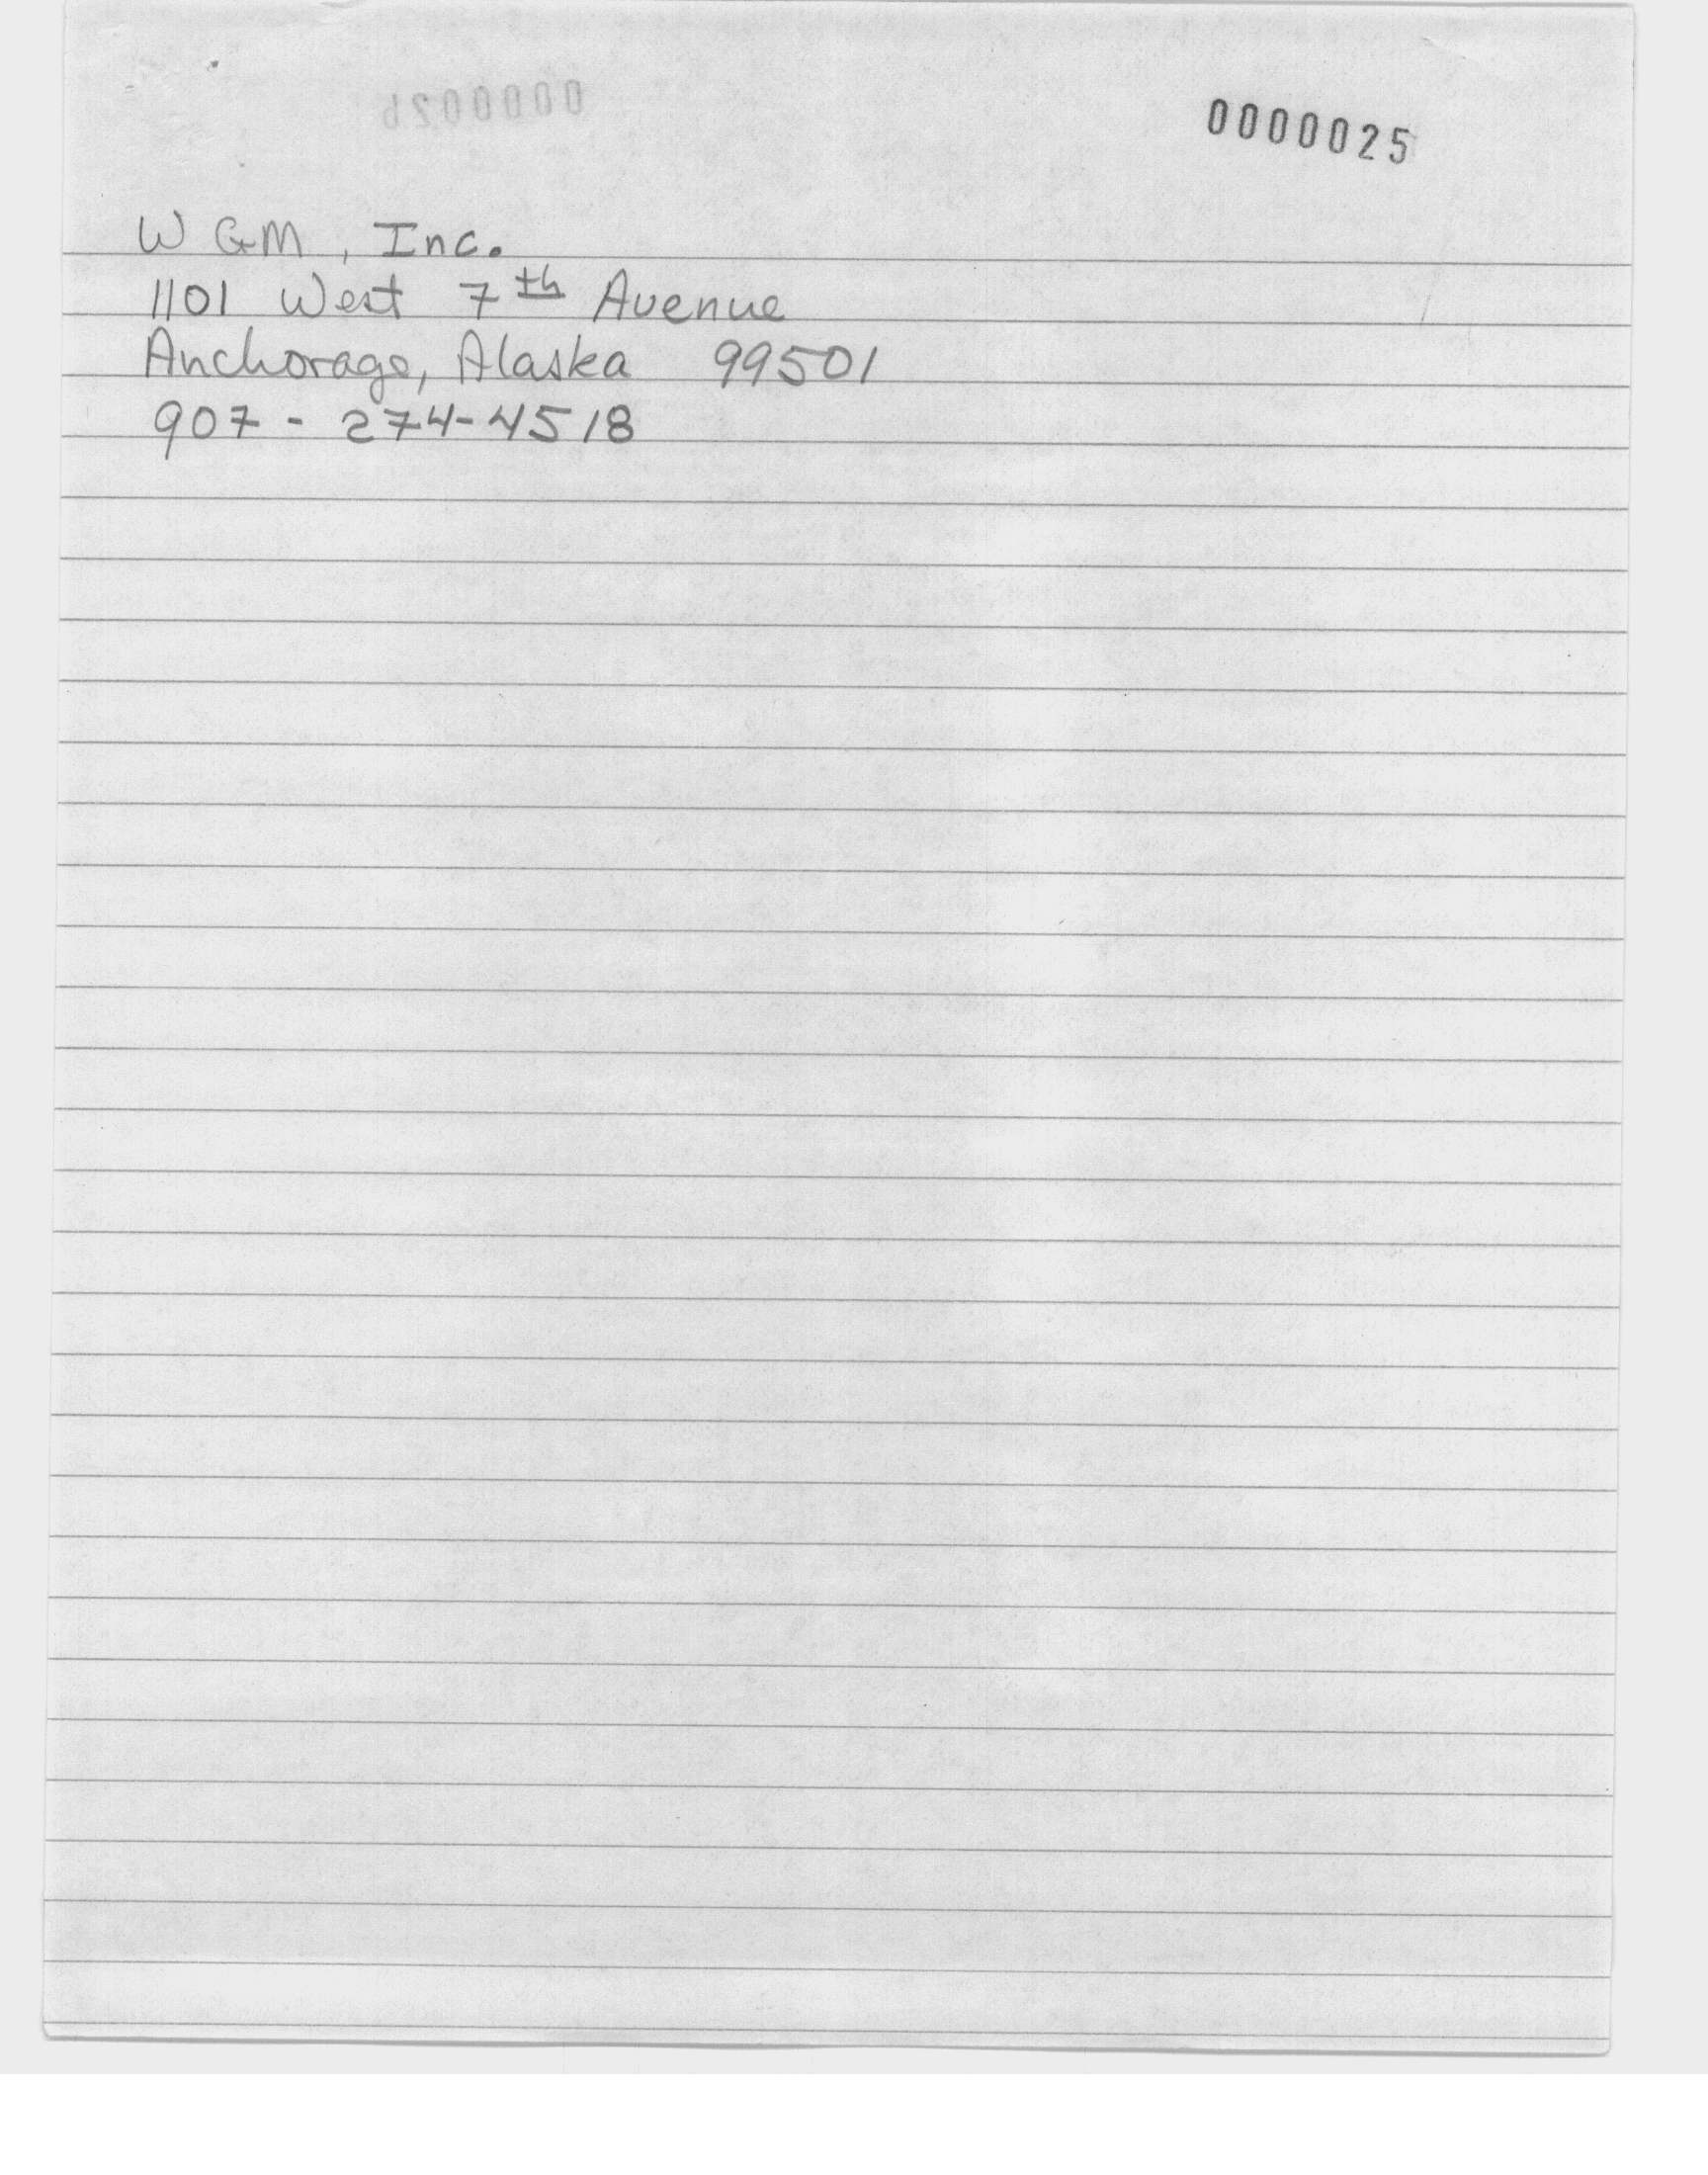 0000025
W GM, Inc.
1101 West 7th Avenue
Anchorage, Alaska 99501
907 - 274-4518